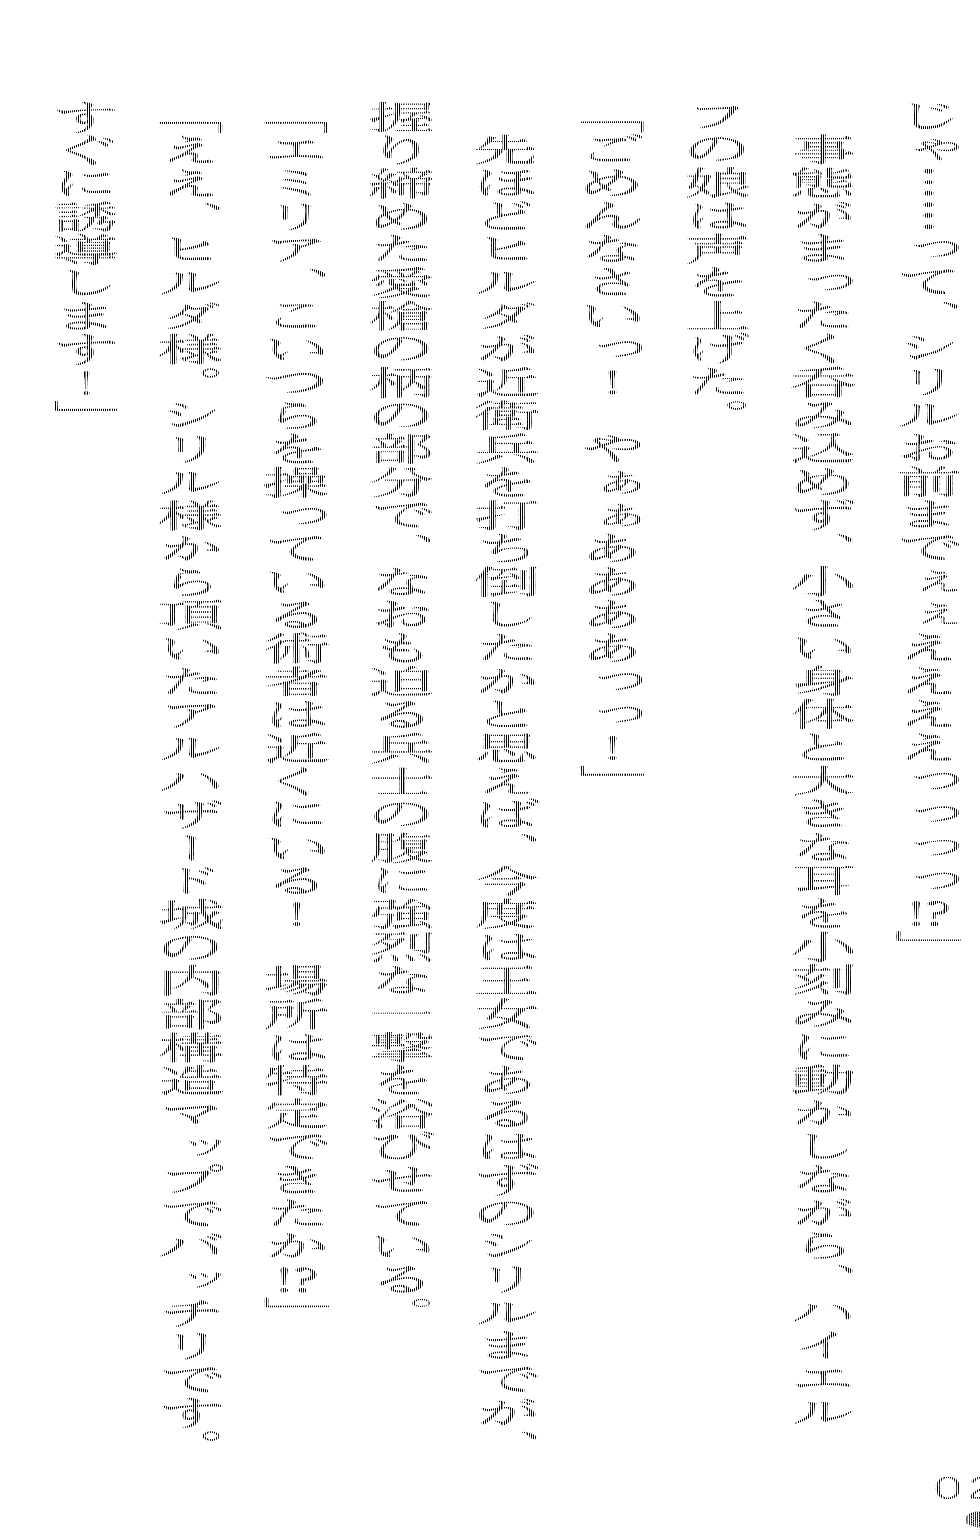 じゃ……って、シリルお前までぇぇえええぇっっっっ!?」
事態がまったく呑み込めず、小さい身体と大きな耳を小刻みに動かしながら、ハイエル
フの娘は声を上げた。
「ごめんなさいっ！　やぁぁああああっっ！」
先ほどヒルダが近衛兵を打ち倒したかと思えば、今度は王女であるはずのシリルまでが、
握り締めた愛槍の柄の部分で、なおも迫る兵士の腹に強烈な一撃を浴びせている。
「エミリア、こいつらを操っている術者は近くにいる！　場所は特定できたか!?」
「ええ、ヒルダ様。シリル様から頂いたアルハザード城の内部構造マップでバッチリです。
すぐに誘導します！」
02